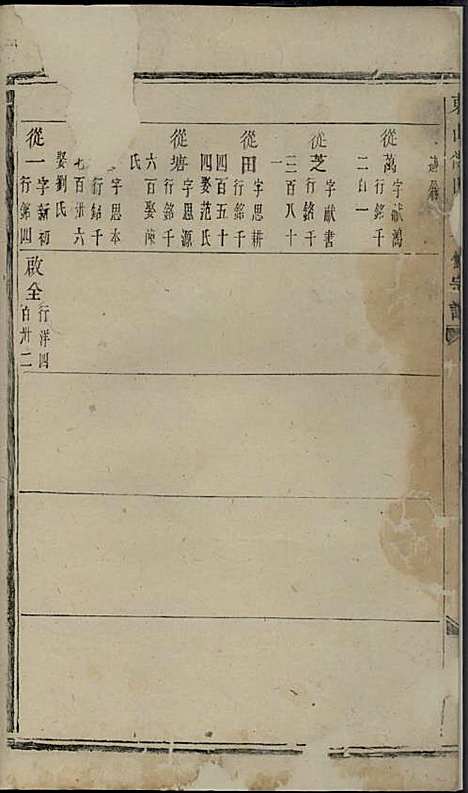 從萬 字献鴻
行銘千
二百一
從芝 字献書
行銘千
二百八十
一
從田 字思耕
行銘千
四百五十
四娶范氏
從塘 字思源
行銘千
六百娶陳
氏
字思本
行銘千
七百卅六
娶劉氏
從一 字新初
行銘四
啟全 行洋四
百卅二